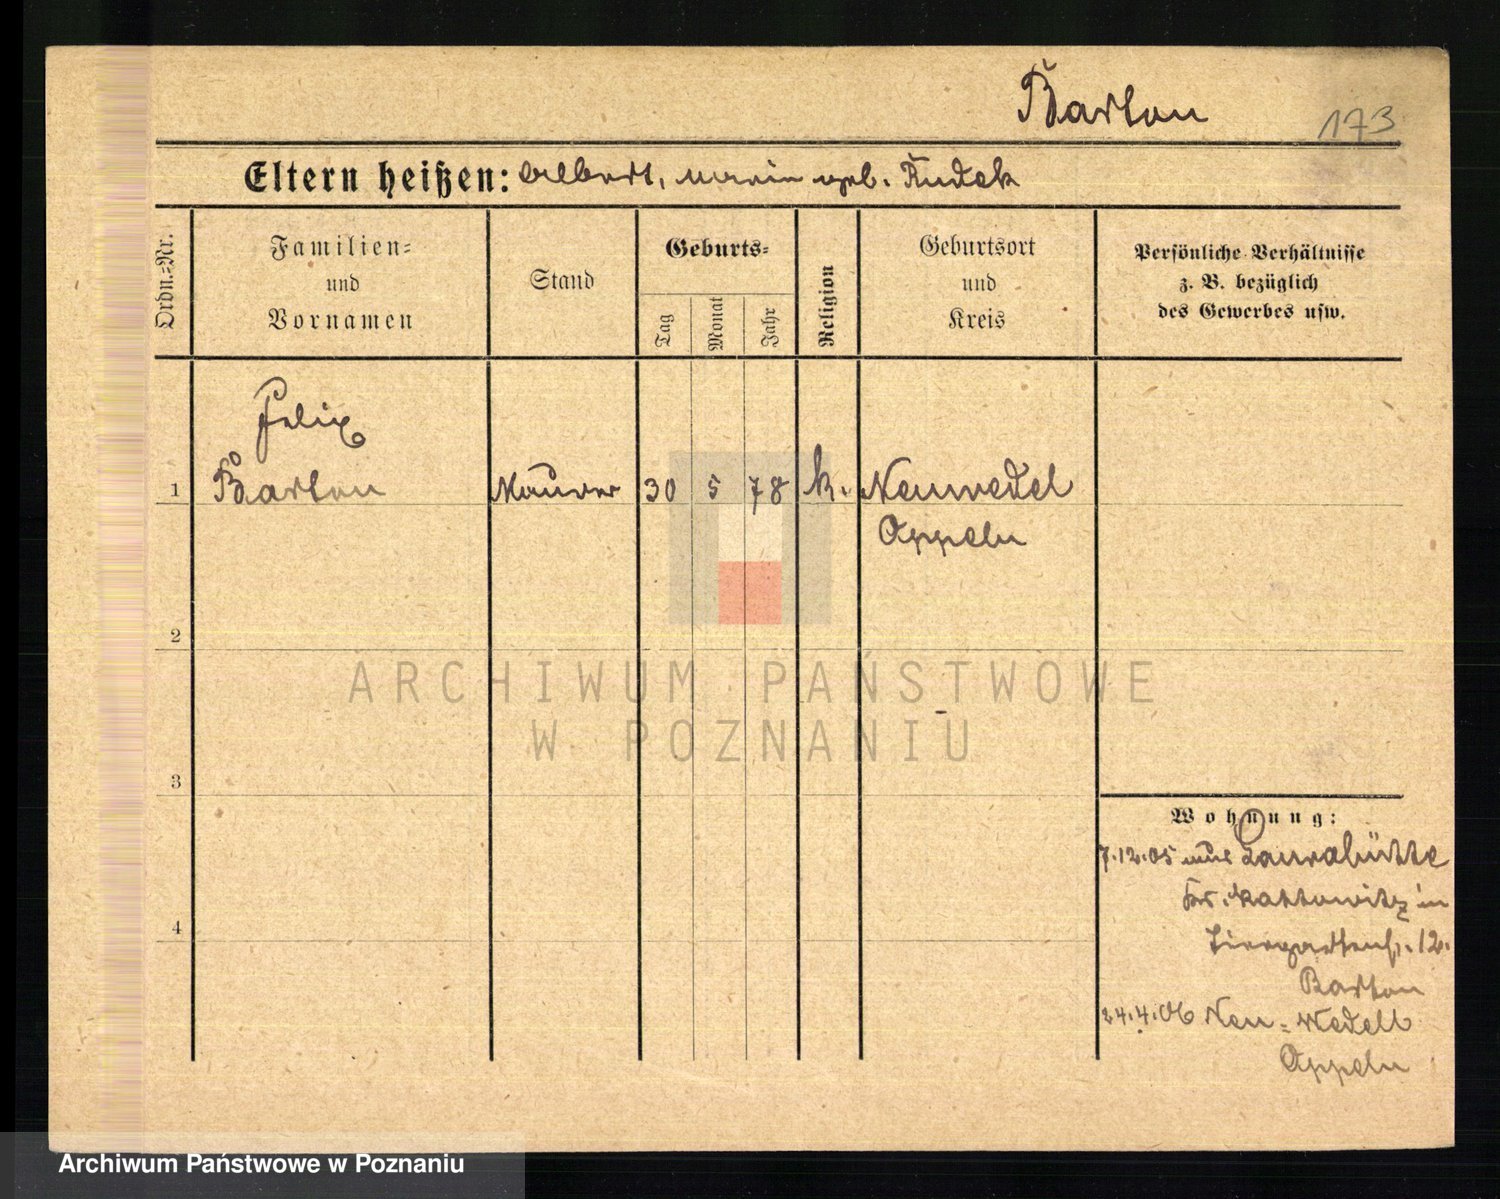 Barton
173
Eltern heißen: Albert, Marie geb. Rudek
Ordn.-Nr.
Familien-
und
Vornamen
Stand
Geburts-
Tag
Monat
Jahr
Religion
Geburtsort
und
Kreis
Persönliche Verhältnisse
z. B. bezüglich
des Gewerbes usw.
Felix
1 Barton Maurer 30 5 78 k. Neuwedel
Oppeln
2
3
4
Wohnung:
7.12.05 aus Laurahütte
Kr. Kattowitz in
Tiergartenstr. 12.
Barton
24.4.06 Neu-Wedell
Oppeln
ARCHIWUM PAŃSTWOWE
W POZNANIU
Archiwum Państwowe w Poznaniu